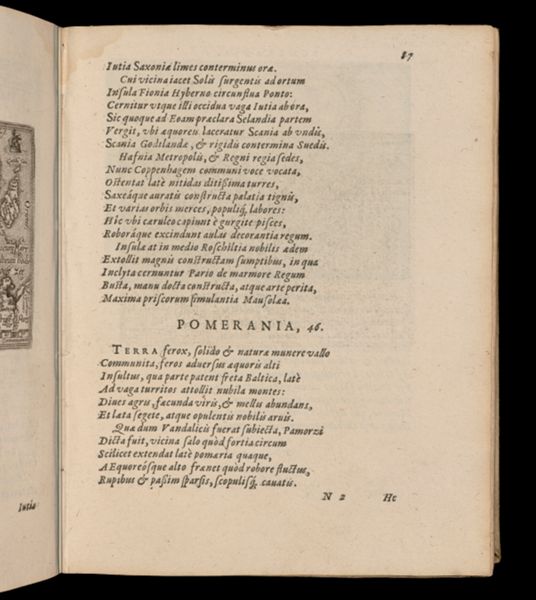 87
Iutia Saxoniæ limes conterminus oræ.
Cui vicina iacet Solis surgentis ad ortum
Insula Fionia Hyberno circunflua Ponto:
Cernitur vtque illi occidua vaga Iutia ab ora,
Sic quoque ad Eoam præclara Selandia partem
Vergit, vbi æquoreis laceratur Scania ab vndis,
Scania Godtlandæ, & rigidis contermina Suedis.
Hafnia Metropolis, & Regni regia sedes,
Nunc Coppenhagem communi voce vocata,
Ostentat latè nitidas ditißima turres,
Saxeáque auratis constructa palatia tignis,
Et varias orbis merces, populiq́; labores:
Hic vbi cæruleo capiunt è gurgite pisces,
Roboráque excindunt aulas decorantia regum.
Insula at in medio Roschiltia nobilis ædem
Extollit magnis constructam sumptibus, in qua
Inclyta cernuntur Pario de marmore Regum
Busta, manu docta constructa, atque arte perita,
Maxima priscorum simulantia Mausolæa.
POMERANIA, 46.
TERRA ferox, solido & naturæ munere vallo
Communita, feros aduersus æquoris alti
Insultus, qua parte patent freta Baltica, latè
Ad vaga turritos attollit nubila montes:
Diues agris, fæcunda viris, & mellis abundans,
Et læta segete, atque opulentis nobilis aruis.
Quæ dum Vandalicis fuerat subiecta, Pamorzi
Dicta fuit, vicina salo quòd fortia circum
Scilicet extendat latè pomæria quaque,
AEquoreósque alto frænet quòd robore fluctus,
Rupibus & paßim sparsis, scopulisq́; cauatis.
N 2 Hc
Iutia